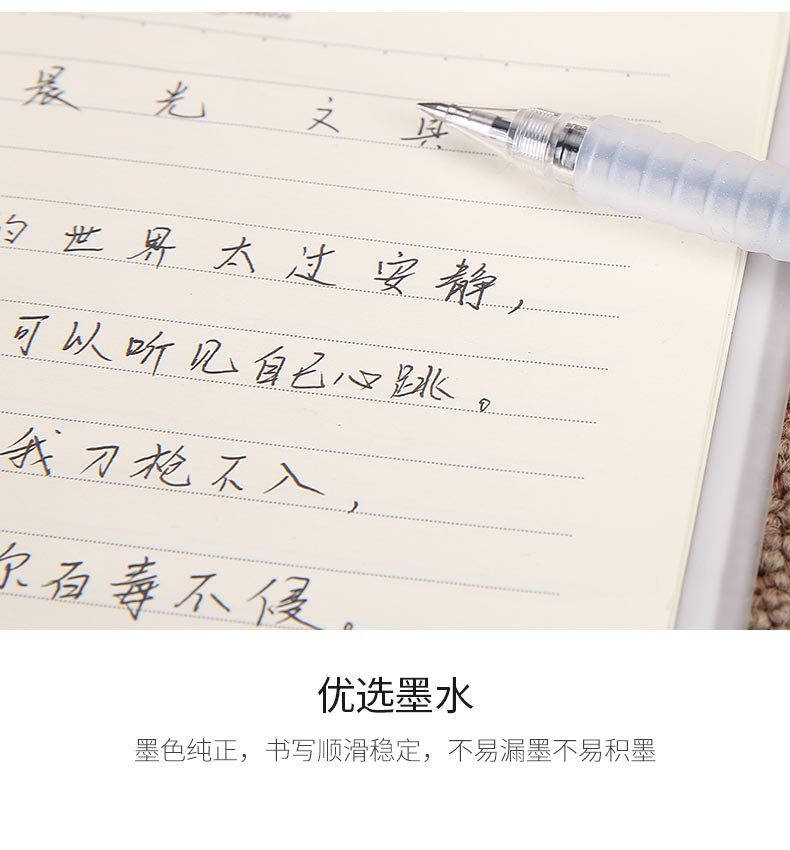 晨光文具
的世界太过安静，
可以听见自己心跳。
我刀枪不入，
你百毒不侵。
优选墨水
墨色纯正，书写顺滑稳定，不易漏墨不易积墨